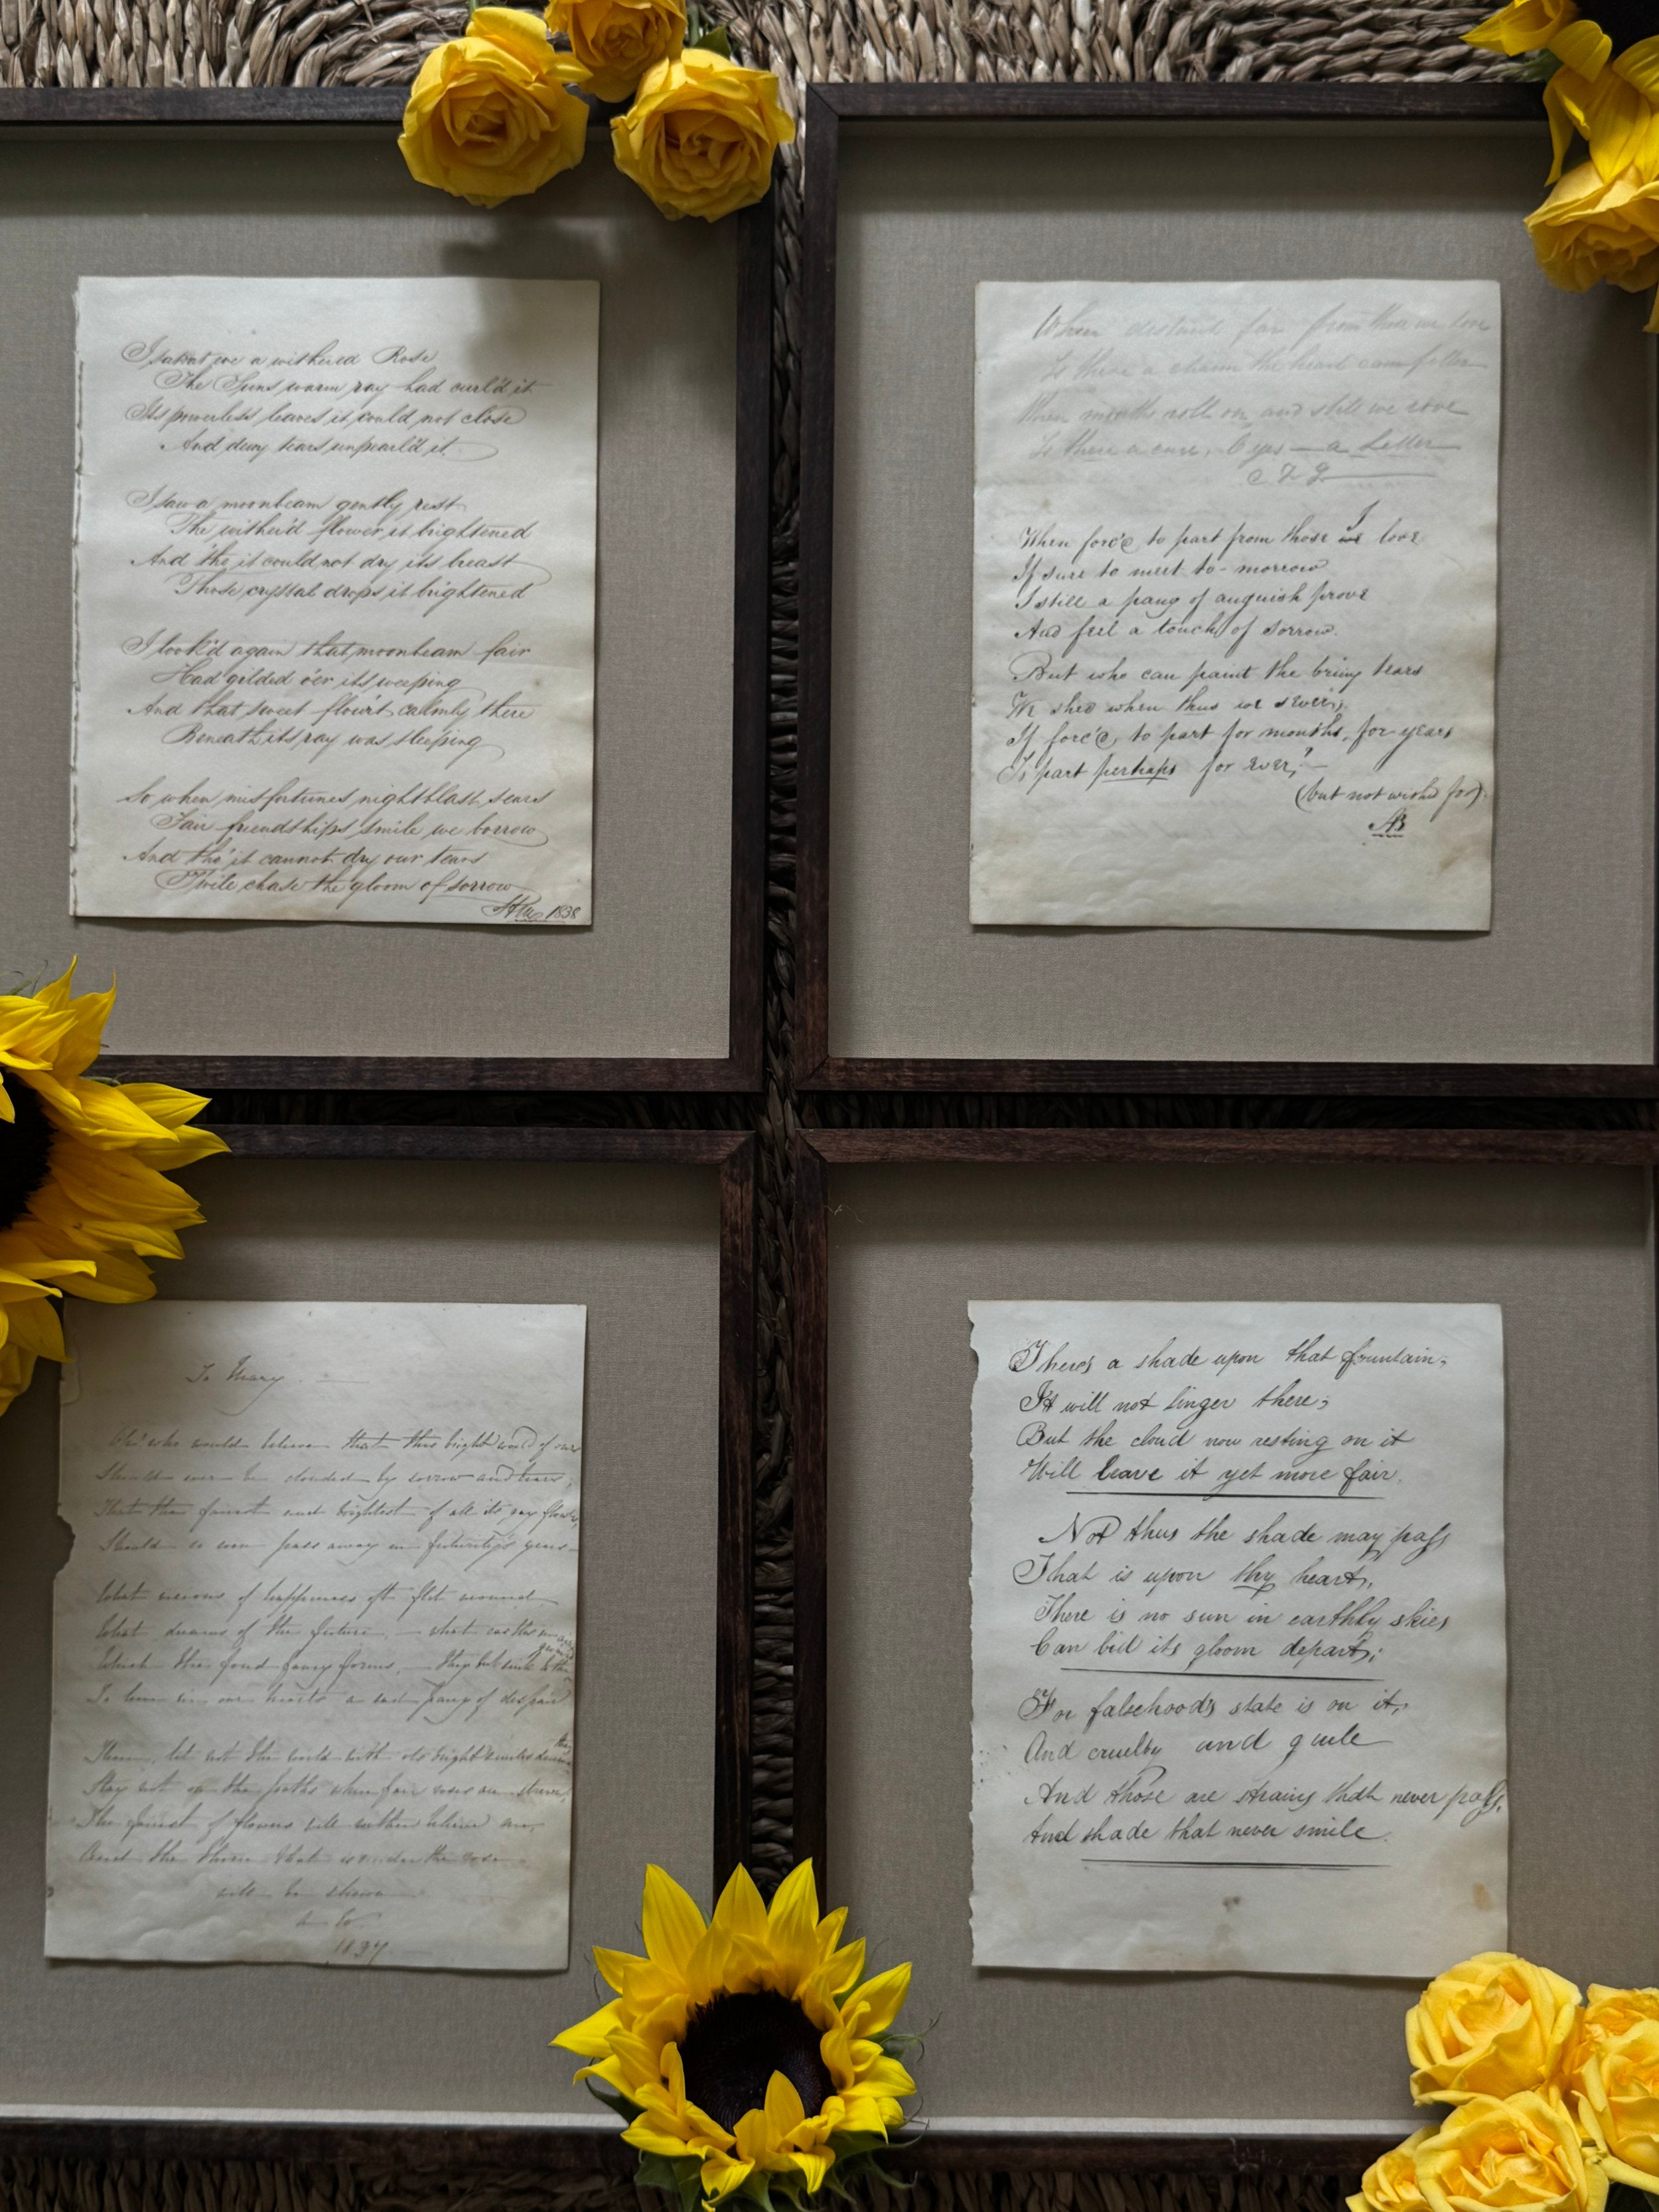 I saw at eve a wither'd Rose
The Suns warm ray had curl'd it
Its powerless leaves it could not close
And dewy tears unpearl'd it
I saw a moonbeam gently rest
The wither'd flower it brightened
And tho' it could not dry its breast
Those crystal drops it brightened
I look'd again that moonbeam fair
Had gilded o'er its weeping
And that sweet flow'rt calmly there
Beneath its ray was sleeping
So when misfortunes nightblast sears
Fair friendships smile we borrow
And tho' it cannot dry our tears
Twile chase the gloom of sorrow
1838
When distant far from those we love
Is there a charm the heart can fetter
When months roll on and still we rove
Is there a cure, O yes — a Letter
When forc'd to part from those we I love
If sure to meet to-morrow
I still a pang of anguish prove
And feel a touch of sorrow.
But who can paint the briny tears
We shed when thus we sever,
If forc'd, to part for months, for years
To part perhaps for ever,! —
(but not wished for)
AB
To Mary.
Oh! who would believe that this bright world of ours
Should ever be clouded by sorrow and tears,
That the fairest and brightest of all its gay flowers,
Should so soon pass away in futurity's years —
What visions of happiness oft flit around
What dreams of the future, — what castles in
Which the fond fancy forms, — They but sink to the
To leave in our hearts a sad pang of despair
Then, let not the world with its bright smiles
Stay not in the paths when fair roses are strewn,
The fairest of flowers will wither
And the thorn that is under the rose
will be shown
1837
There's a shade upon that fountain,
It will not linger there;
But the cloud now resting on it
Will leave it yet more fair.
Not thus the shade may pass
That is upon thy heart,
There is no sun in earthly skies
Can bid its gloom depart;
For falsehood's state is on it,
And cruelty and guile
And those are strains that never pass,
And shade that never smile.